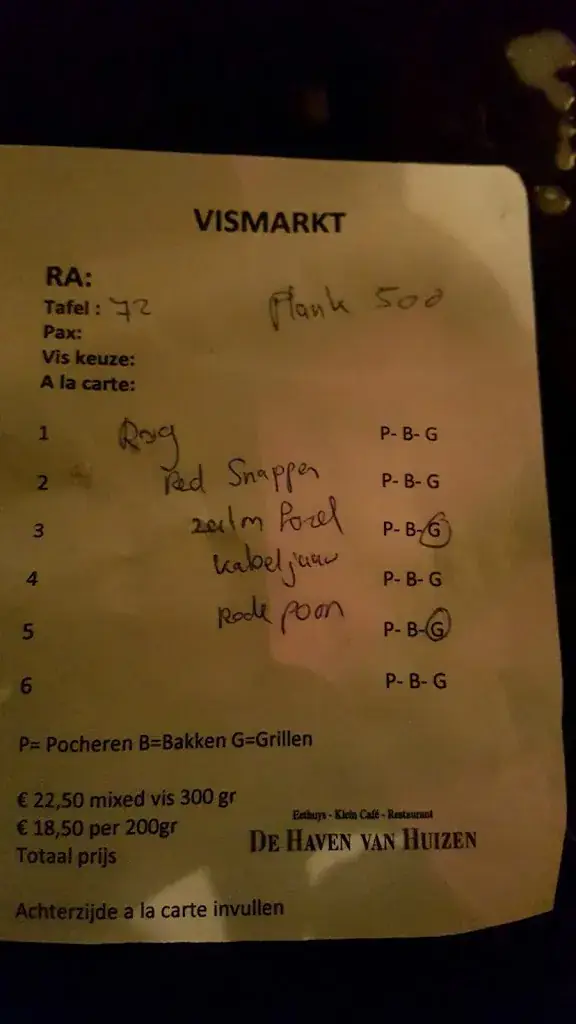 VISMARKT
RA:
Tafel : 72 Plank 500
Pax:
Vis keuze:
A la carte:
1 Rog P- B- G
2 Red Snapper P- B- G
3 P- B- G
4 Kabeljauw P- B- G
5 Rode poon P- B- G
6 P- B- G
P= Pocheren B=Bakken G=Grillen
€ 22,50 mixed vis 300 gr
€ 18,50 per 200gr
Totaal prijs
Eethuys - Klein Café - Restaurant
DE HAVEN VAN HUIZEN
Achterzijde a la carte invullen